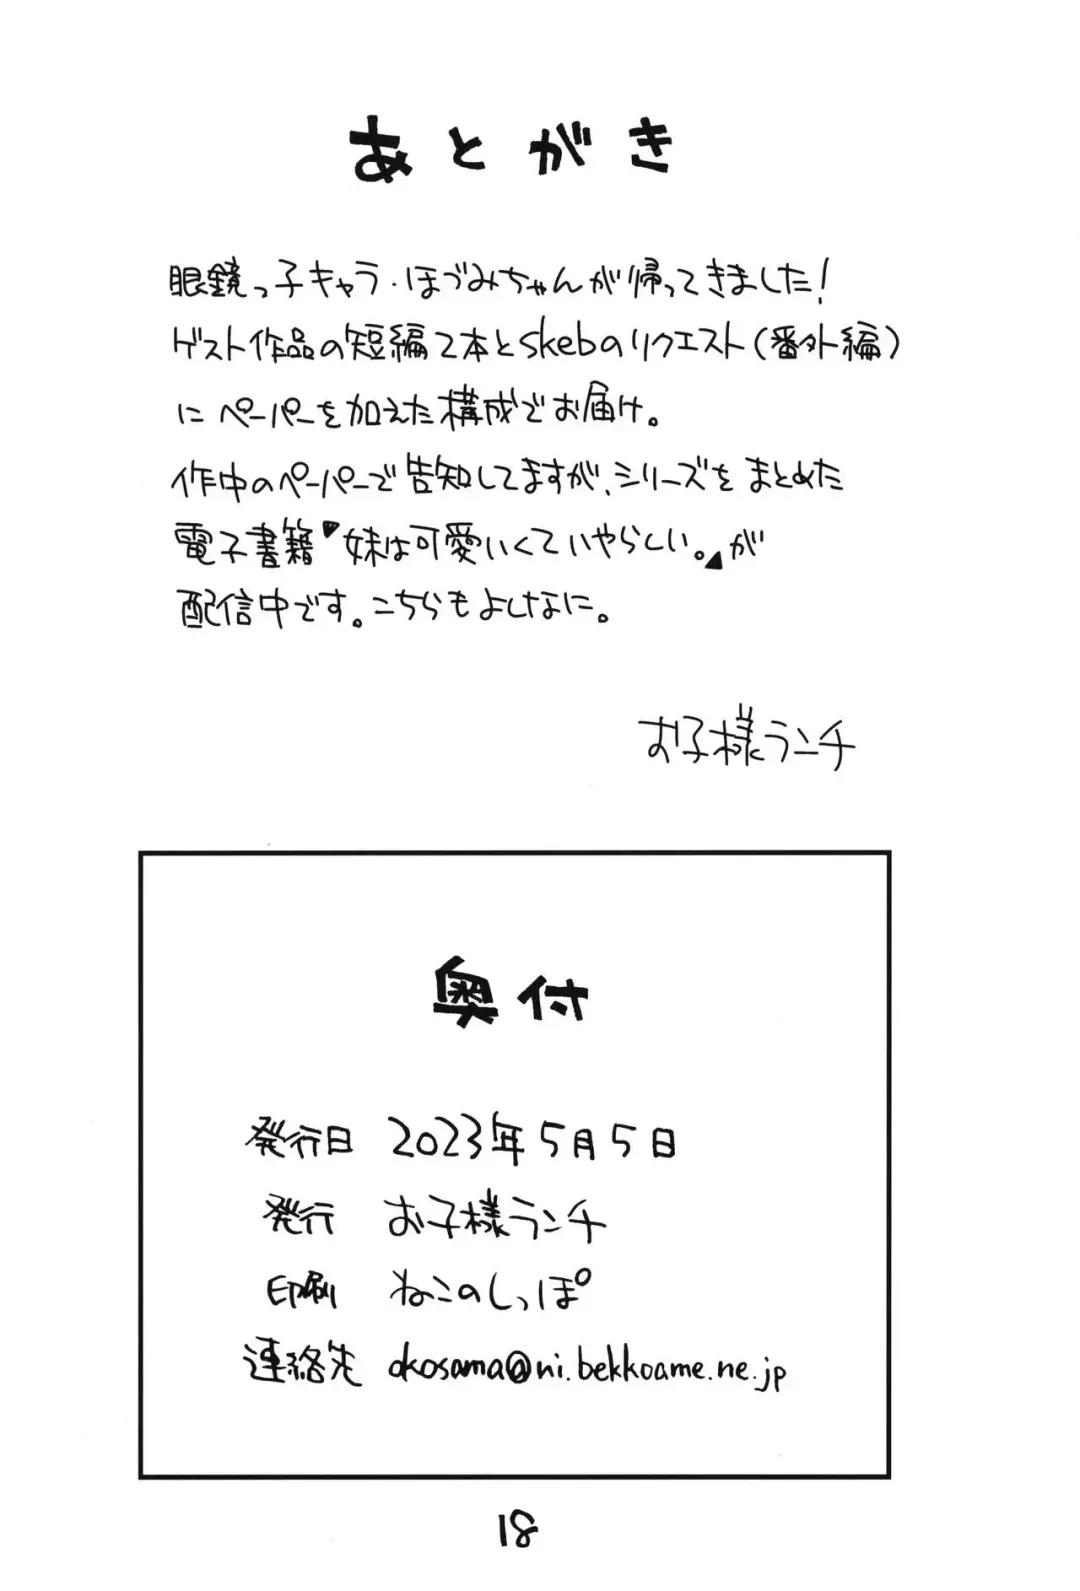 あとがき
眼鏡っ子キャラ・ほづみちゃんが帰ってきました!
ゲスト作品の短編2本とskebのリクエスト(番外編)
にペーパーを加えた構成でお届け。
作中のペーパーで告知してますが、シリーズをまとめた
電子書籍「妹は可愛いくていやらしい。」が
配信中です。こちらもよしなに。
お子様ランチ
奥付
発行日 2023年5月5日
発行 お子様ランチ
印刷 ねこのしっぽ
連絡先 okosama@ni.bekkoame.ne.jp
18